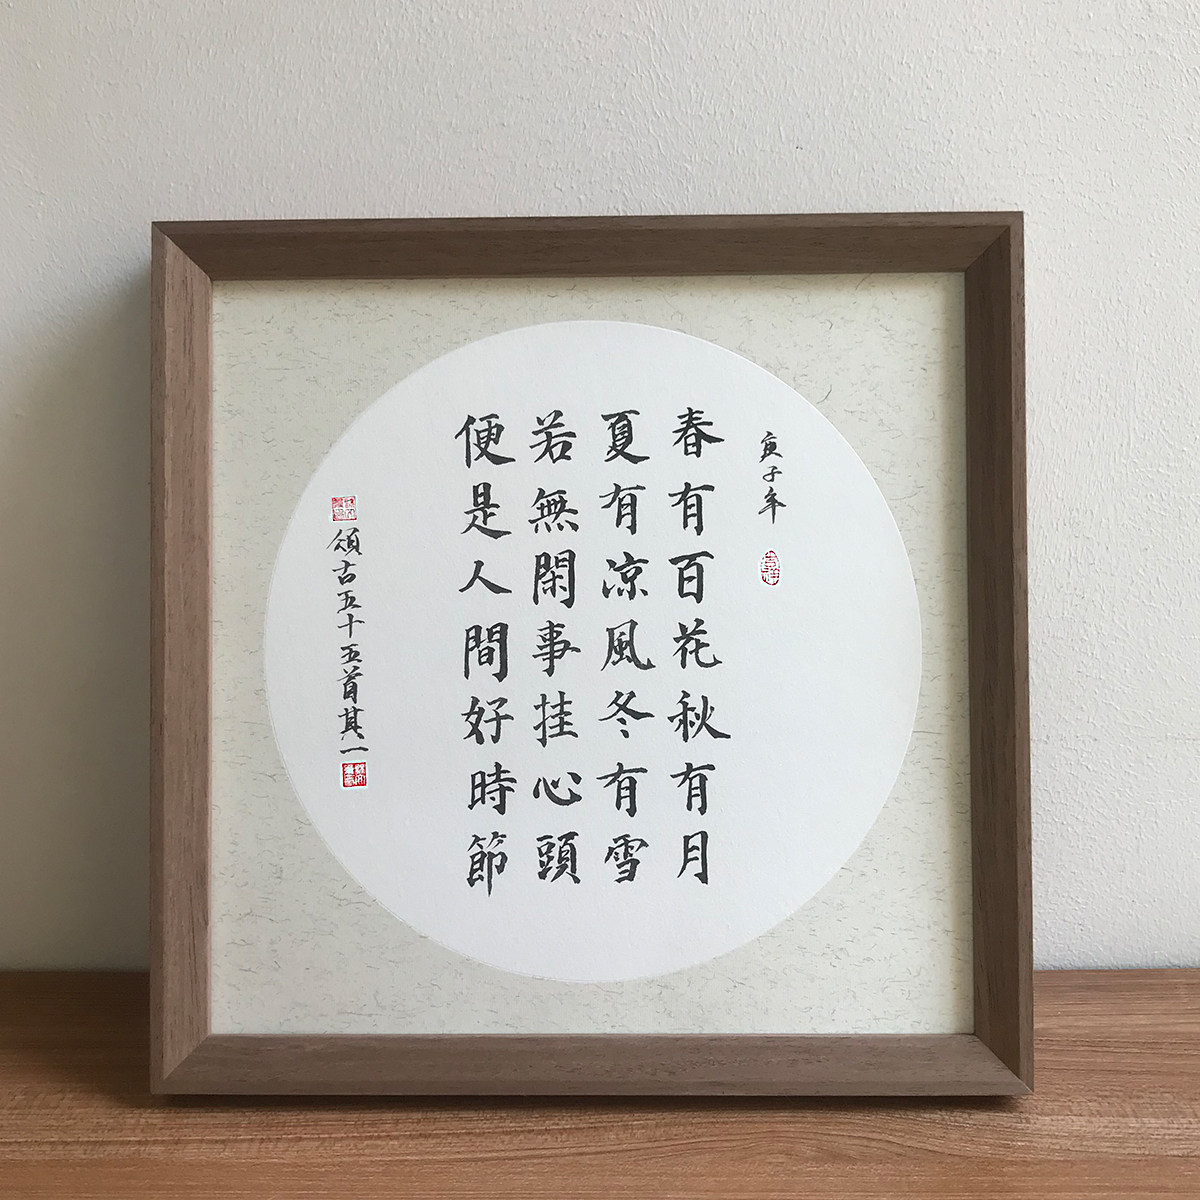 庚子年
春有百花秋有月
夏有凉風冬有雪
若無閑事挂心頭
便是人間好時節
頌古五十五首其一